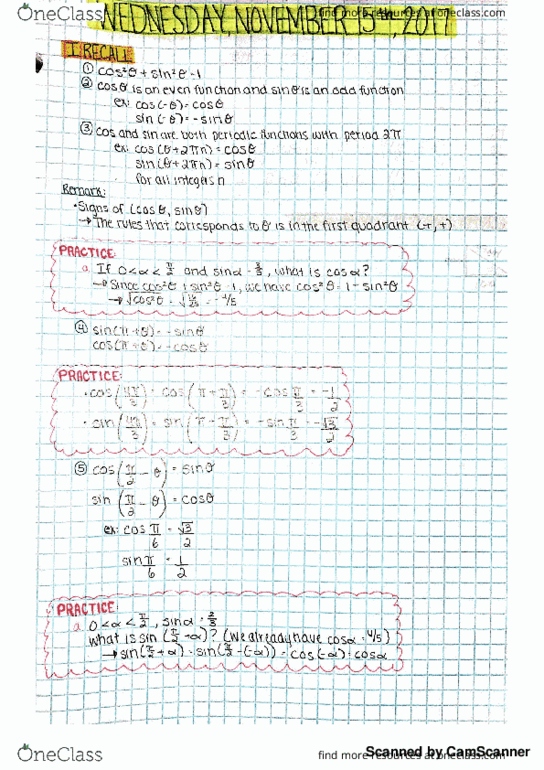 OneClass
find more resources at oneclass.com
WEDNESDAY, NOVEMBER 15th, 2017
I. RECALL
① cos²θ + sin²θ = 1
② cosθ is an even function and sinθ is an odd function
ex: cos(-θ) = cosθ
sin(-θ) = -sinθ
③ cos and sin are both periodic functions with period 2π
ex: cos(θ+2πn) = cosθ
sin(θ+2πn) = sinθ
for all integers n
Remark:
• Signs of (cosθ, sinθ)
→ The rules that corresponds to θ is in the first quadrant (+,+)
PRACTICE:
a. If 0<α<π/2 and sinα = 3/5, what is cosα?
→ Since cos²θ + sin²θ = 1, we have cos²θ = 1 - sin²θ
④ sin(π+θ) = -sinθ
cos(π+θ) = -cosθ
PRACTICE:
• cos(4π/3) = cos(π+π/3) = -cos π/3 = -1/2
• sin(4π/3) = sin(π+π/3) = -sin π/3 = -√3/2
⑤ cos(π/2 - θ) = sinθ
sin(π/2 - θ) = cosθ
ex: cos π/6 = √3/2
sin π/6 = 1/2
PRACTICE:
a. 0<α<π/2, sinα = 3/5
what is sin(π/2+α)? (we already have cosα = 4/5)
→ sin(π/2+α) = sin(π/2-(-α)) = cos(-α) = cosα
OneClass
find more resources at oneclass.com
Scanned by CamScanner